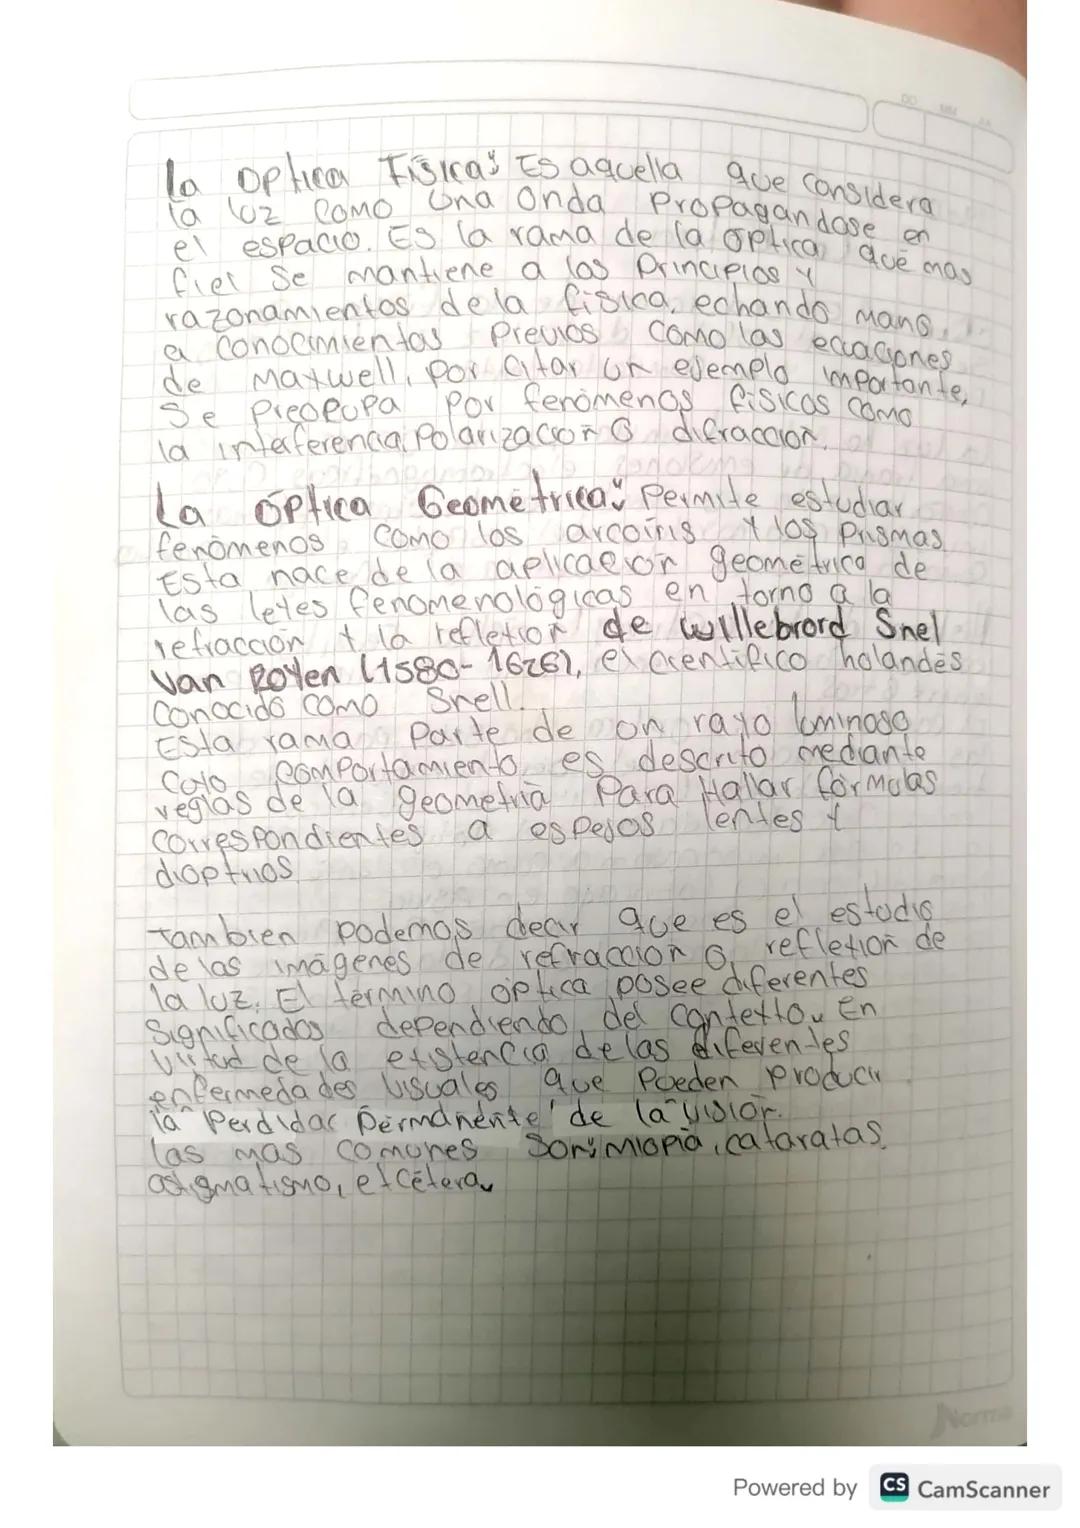 DD MM AA
La Optica Física: Es aquella que considera
la luz como una Onda Propagandose en
el espacio. Es la rama de la óptica que mas
fiel se mantiene a los Principios y
razonamientos de la física, echando mano
a conocimientos Previos como las ecuaciones
de Maxwell, por citar un ejemplo importante,
Se Preocupa por fenómenos físicos como
la intaferencia, Polarización o difracción.
La óptica Geométrica: Permite estudiar
fenómenos como los arcoíris y los Prismas
Esta nace de la aplicación geométrica de
las leyes fenomenológicas en torno a la
refracción y la reflexión de Willebrord Snel
Van Royen (1580-1626), el científico holandés
Conocido como Snell.
Esta rama Parte de un rayo luminoso
Cuyo comportamiento es descrito mediante
reglas de la geometría Para Hallar fórmulas
Correspondientes a espejos lentes y
dioptrios
También podemos decir que es el estudio
de las imágenes de refracción o reflexión de
la luz. El término óptica posee diferentes
Significados dependiendo del contexto. En
Virtud de la existencia de las diferentes
enfermedades visuales que Pueden producir
la Perdidad Permanente de la visión.
Las mas comunes Son: Miopía, cataratas,
astigmatismo, etcétera.
Norma
Powered by CS CamScanner